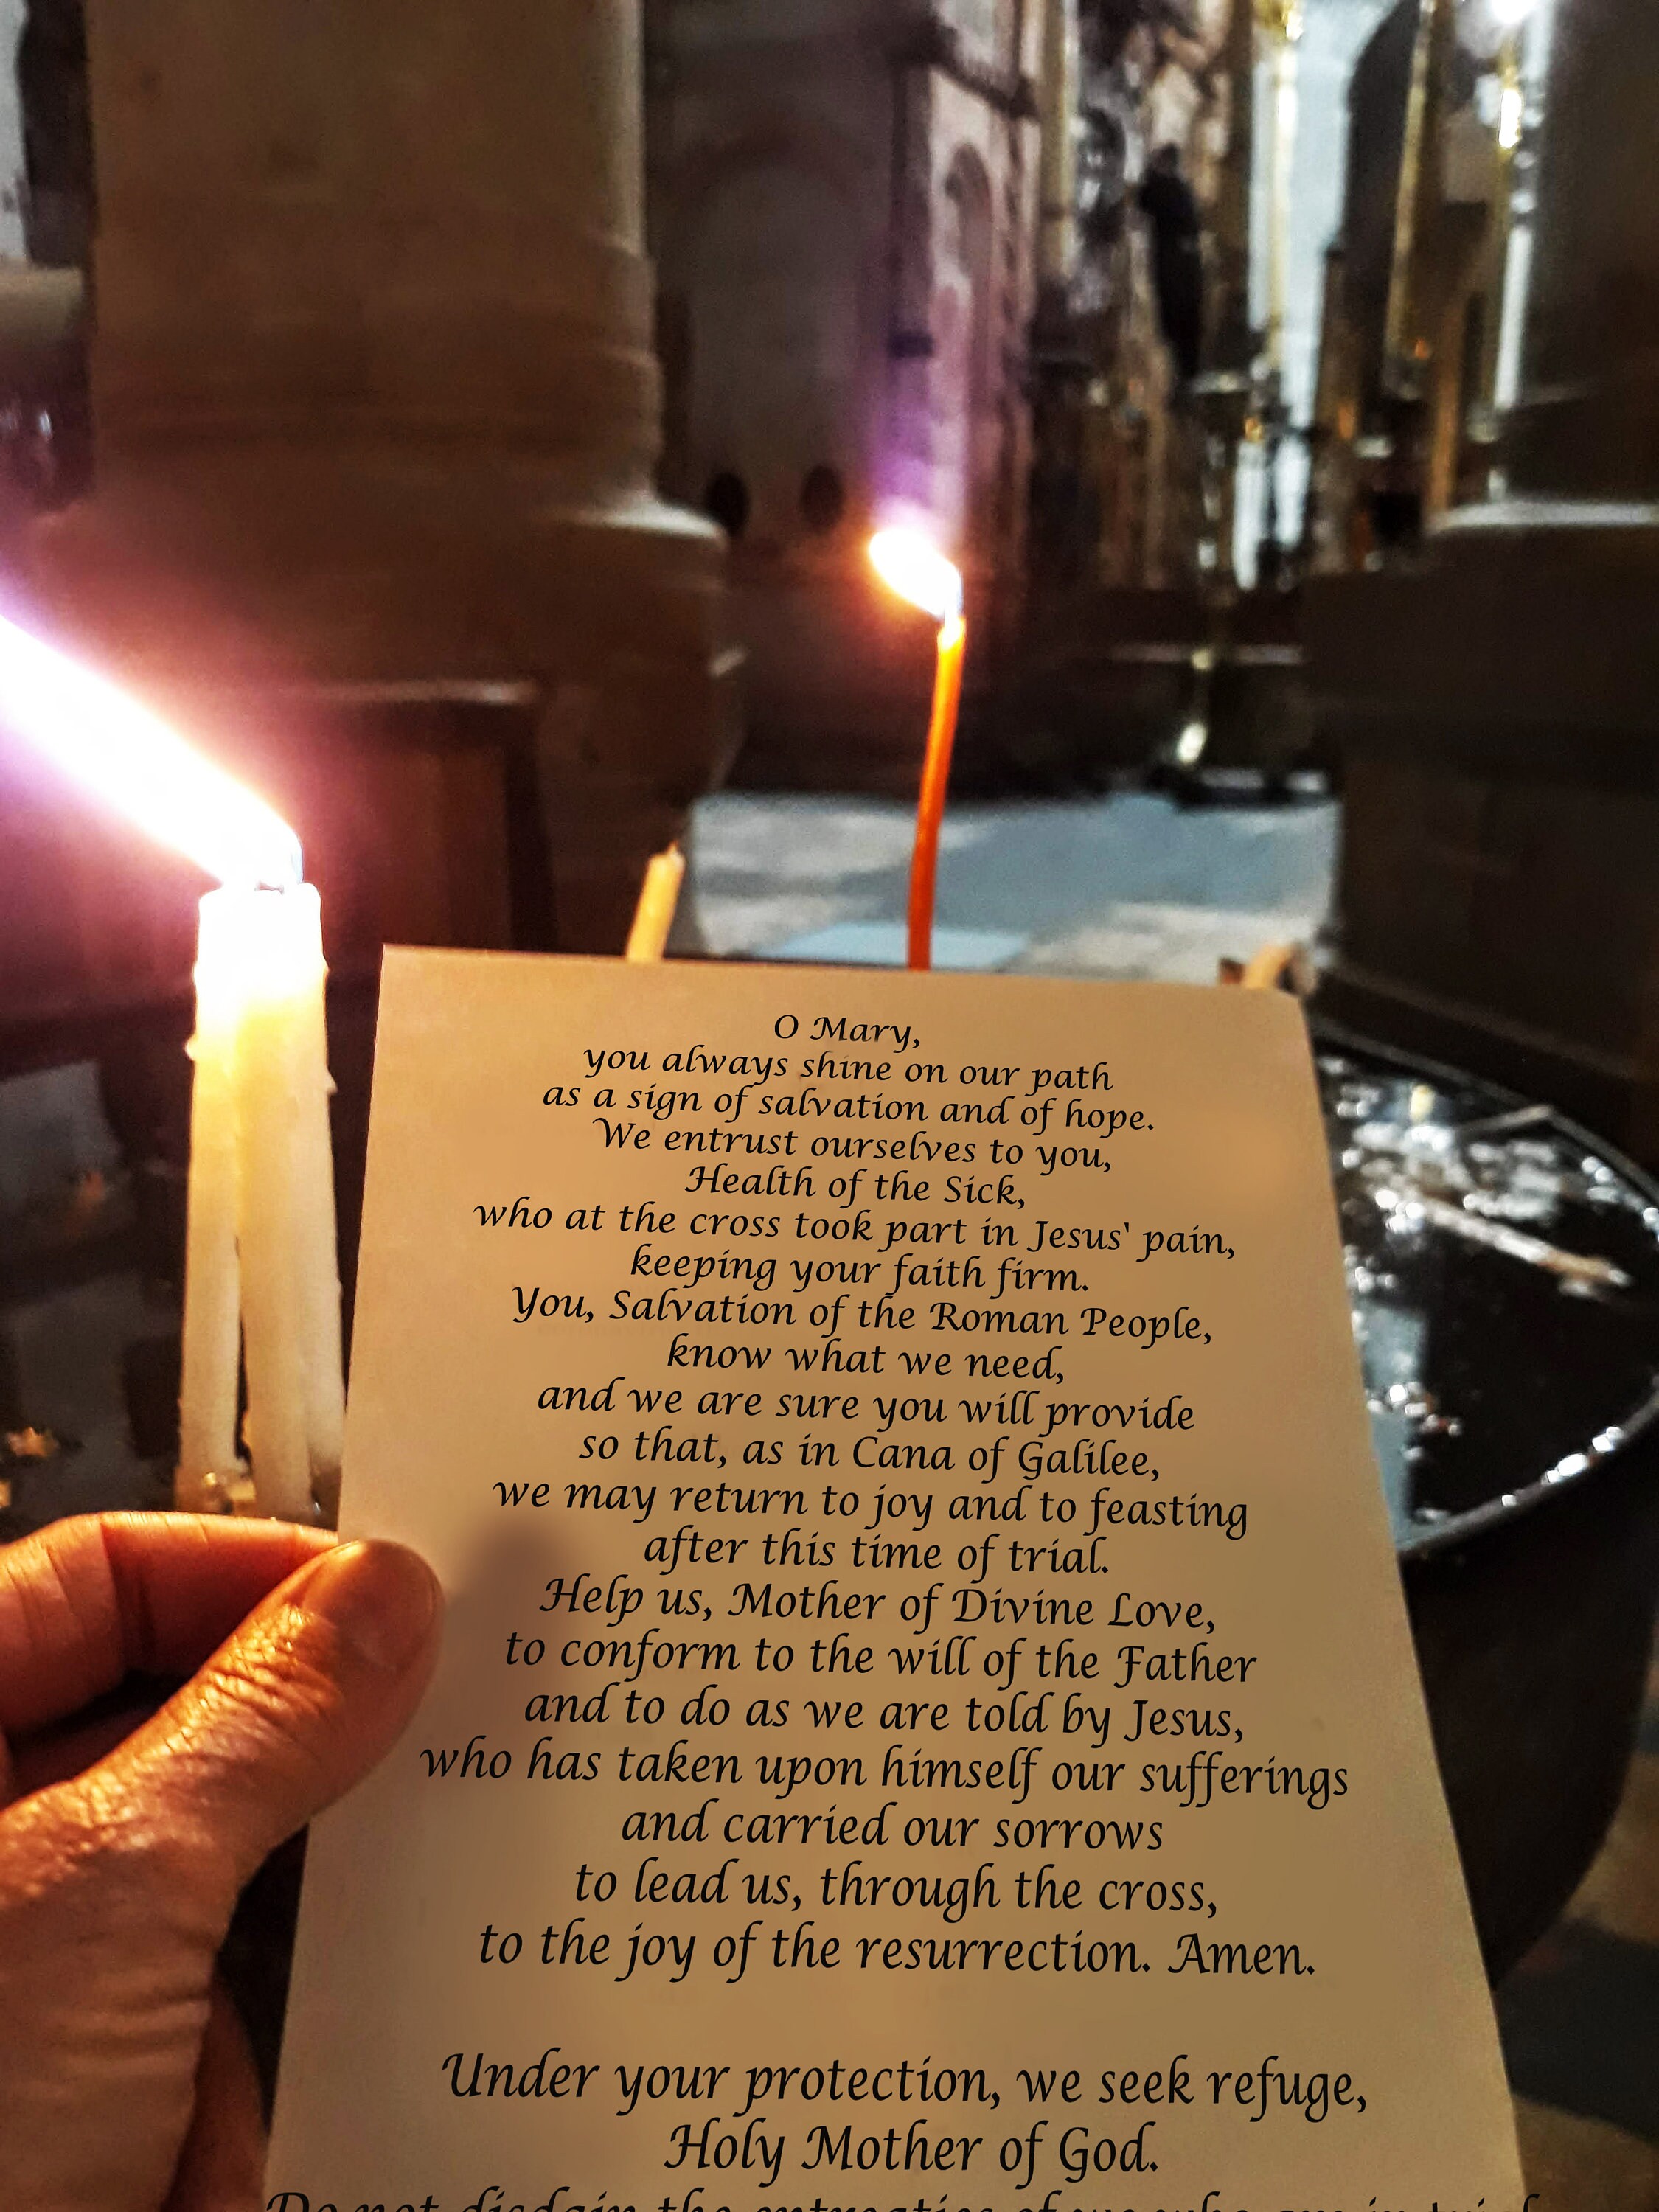 O Mary,
you always shine on our path
as a sign of salvation and of hope.
We entrust ourselves to you,
Health of the Sick,
who at the cross took part in Jesus' pain,
keeping your faith firm.
You, Salvation of the Roman People,
know what we need,
and we are sure you will provide
so that, as in Cana of Galilee,
we may return to joy and to feasting
after this time of trial.
Help us, Mother of Divine Love,
to conform to the will of the Father
and to do as we are told by Jesus,
who has taken upon himself our sufferings
and carried our sorrows
to lead us, through the cross,
to the joy of the resurrection. Amen.
Under your protection, we seek refuge,
Holy Mother of God.
Do not disdain the entreaties of we who are in trial